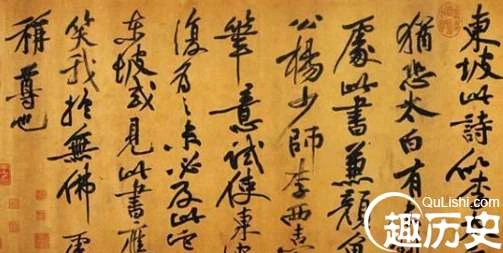 東坡此詩似李太
猶恐太白有
處此書兼顏魯
公楊少師李西臺
筆意試使東坡
復為之未必及此它
東坡或見此書應
笑我於無佛處
稱尊也
QuLishi.com
趣历史